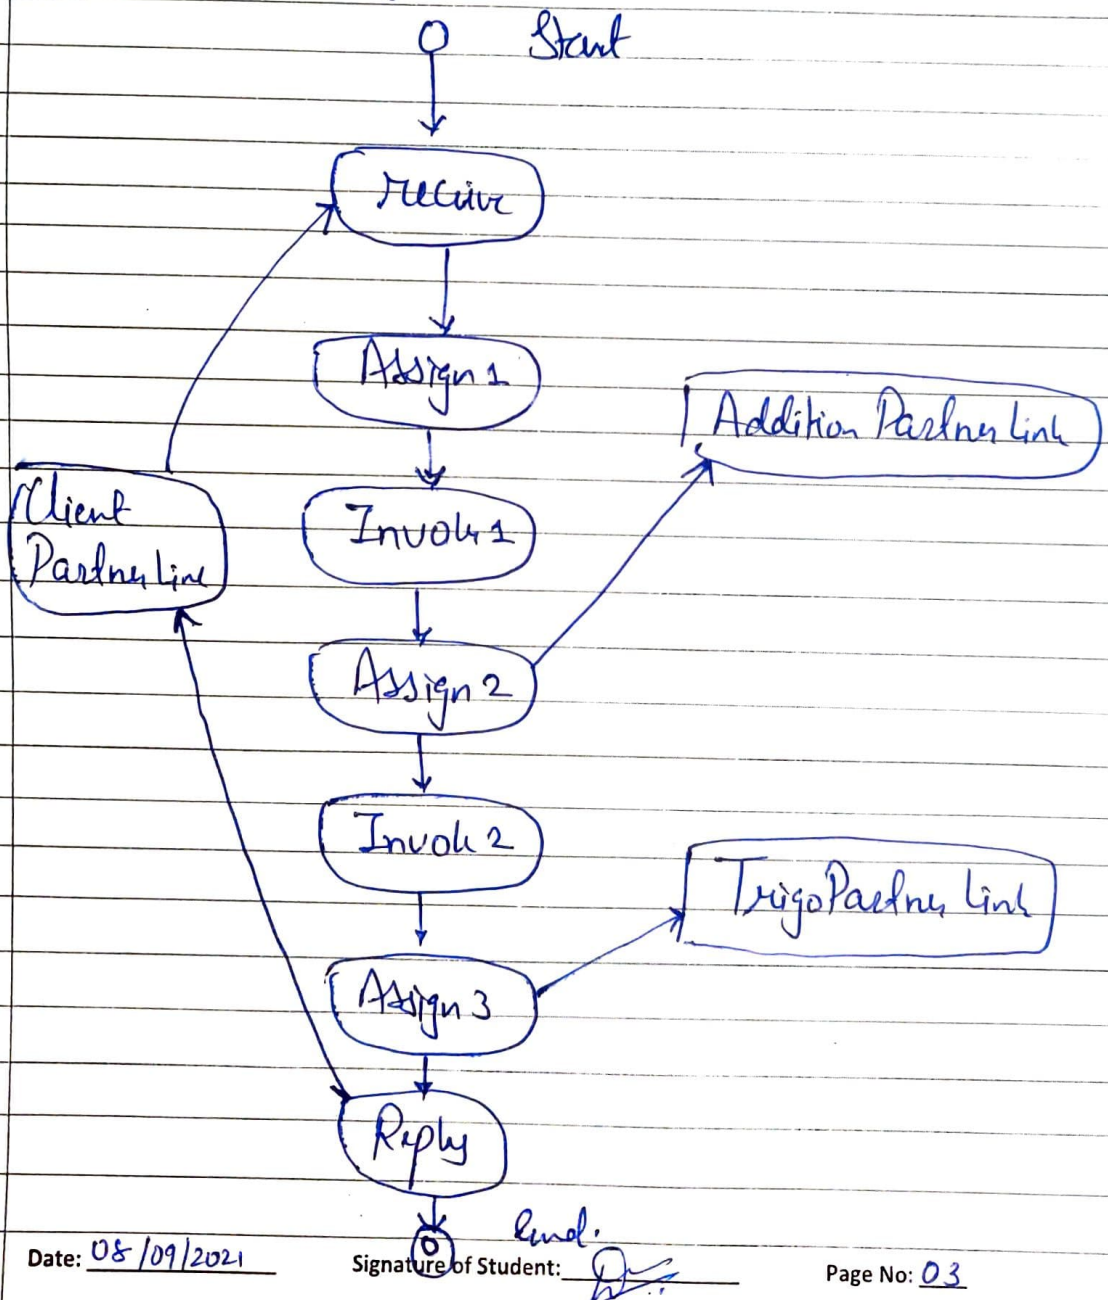 Start
receive
Assign 1
Addition Partner Link
Client
Partner Link
Invok 1
Assign 2
Invok 2
TrigoPartner Link
Assign 3
Reply
End.
Date: 08/09/2021 Signature of Student: Page No: 03